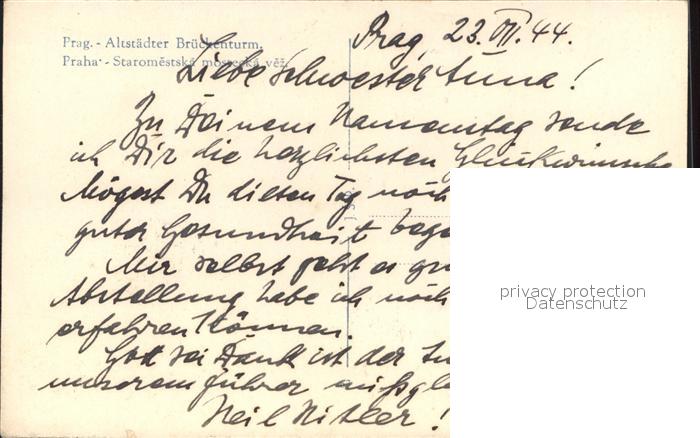 Prag, 23. VII. 44.
Prag. - Altstädter Brückenturm.
Praha - Staroměstská mostecká věž.
Liebe Schwester Anna!
Zu Deinem Namenstag sende
ich Dir die herzlichsten Glückwünsche
Mögest Du diesen Tag noch
guter Gesundheit bege
Mir selbst geht es gu
Abstellung habe ich noch
erfahren können.
Gott sei Dank ist der
unserem Führer missgl
Heil Hitler!
privacy protection
Datenschutz